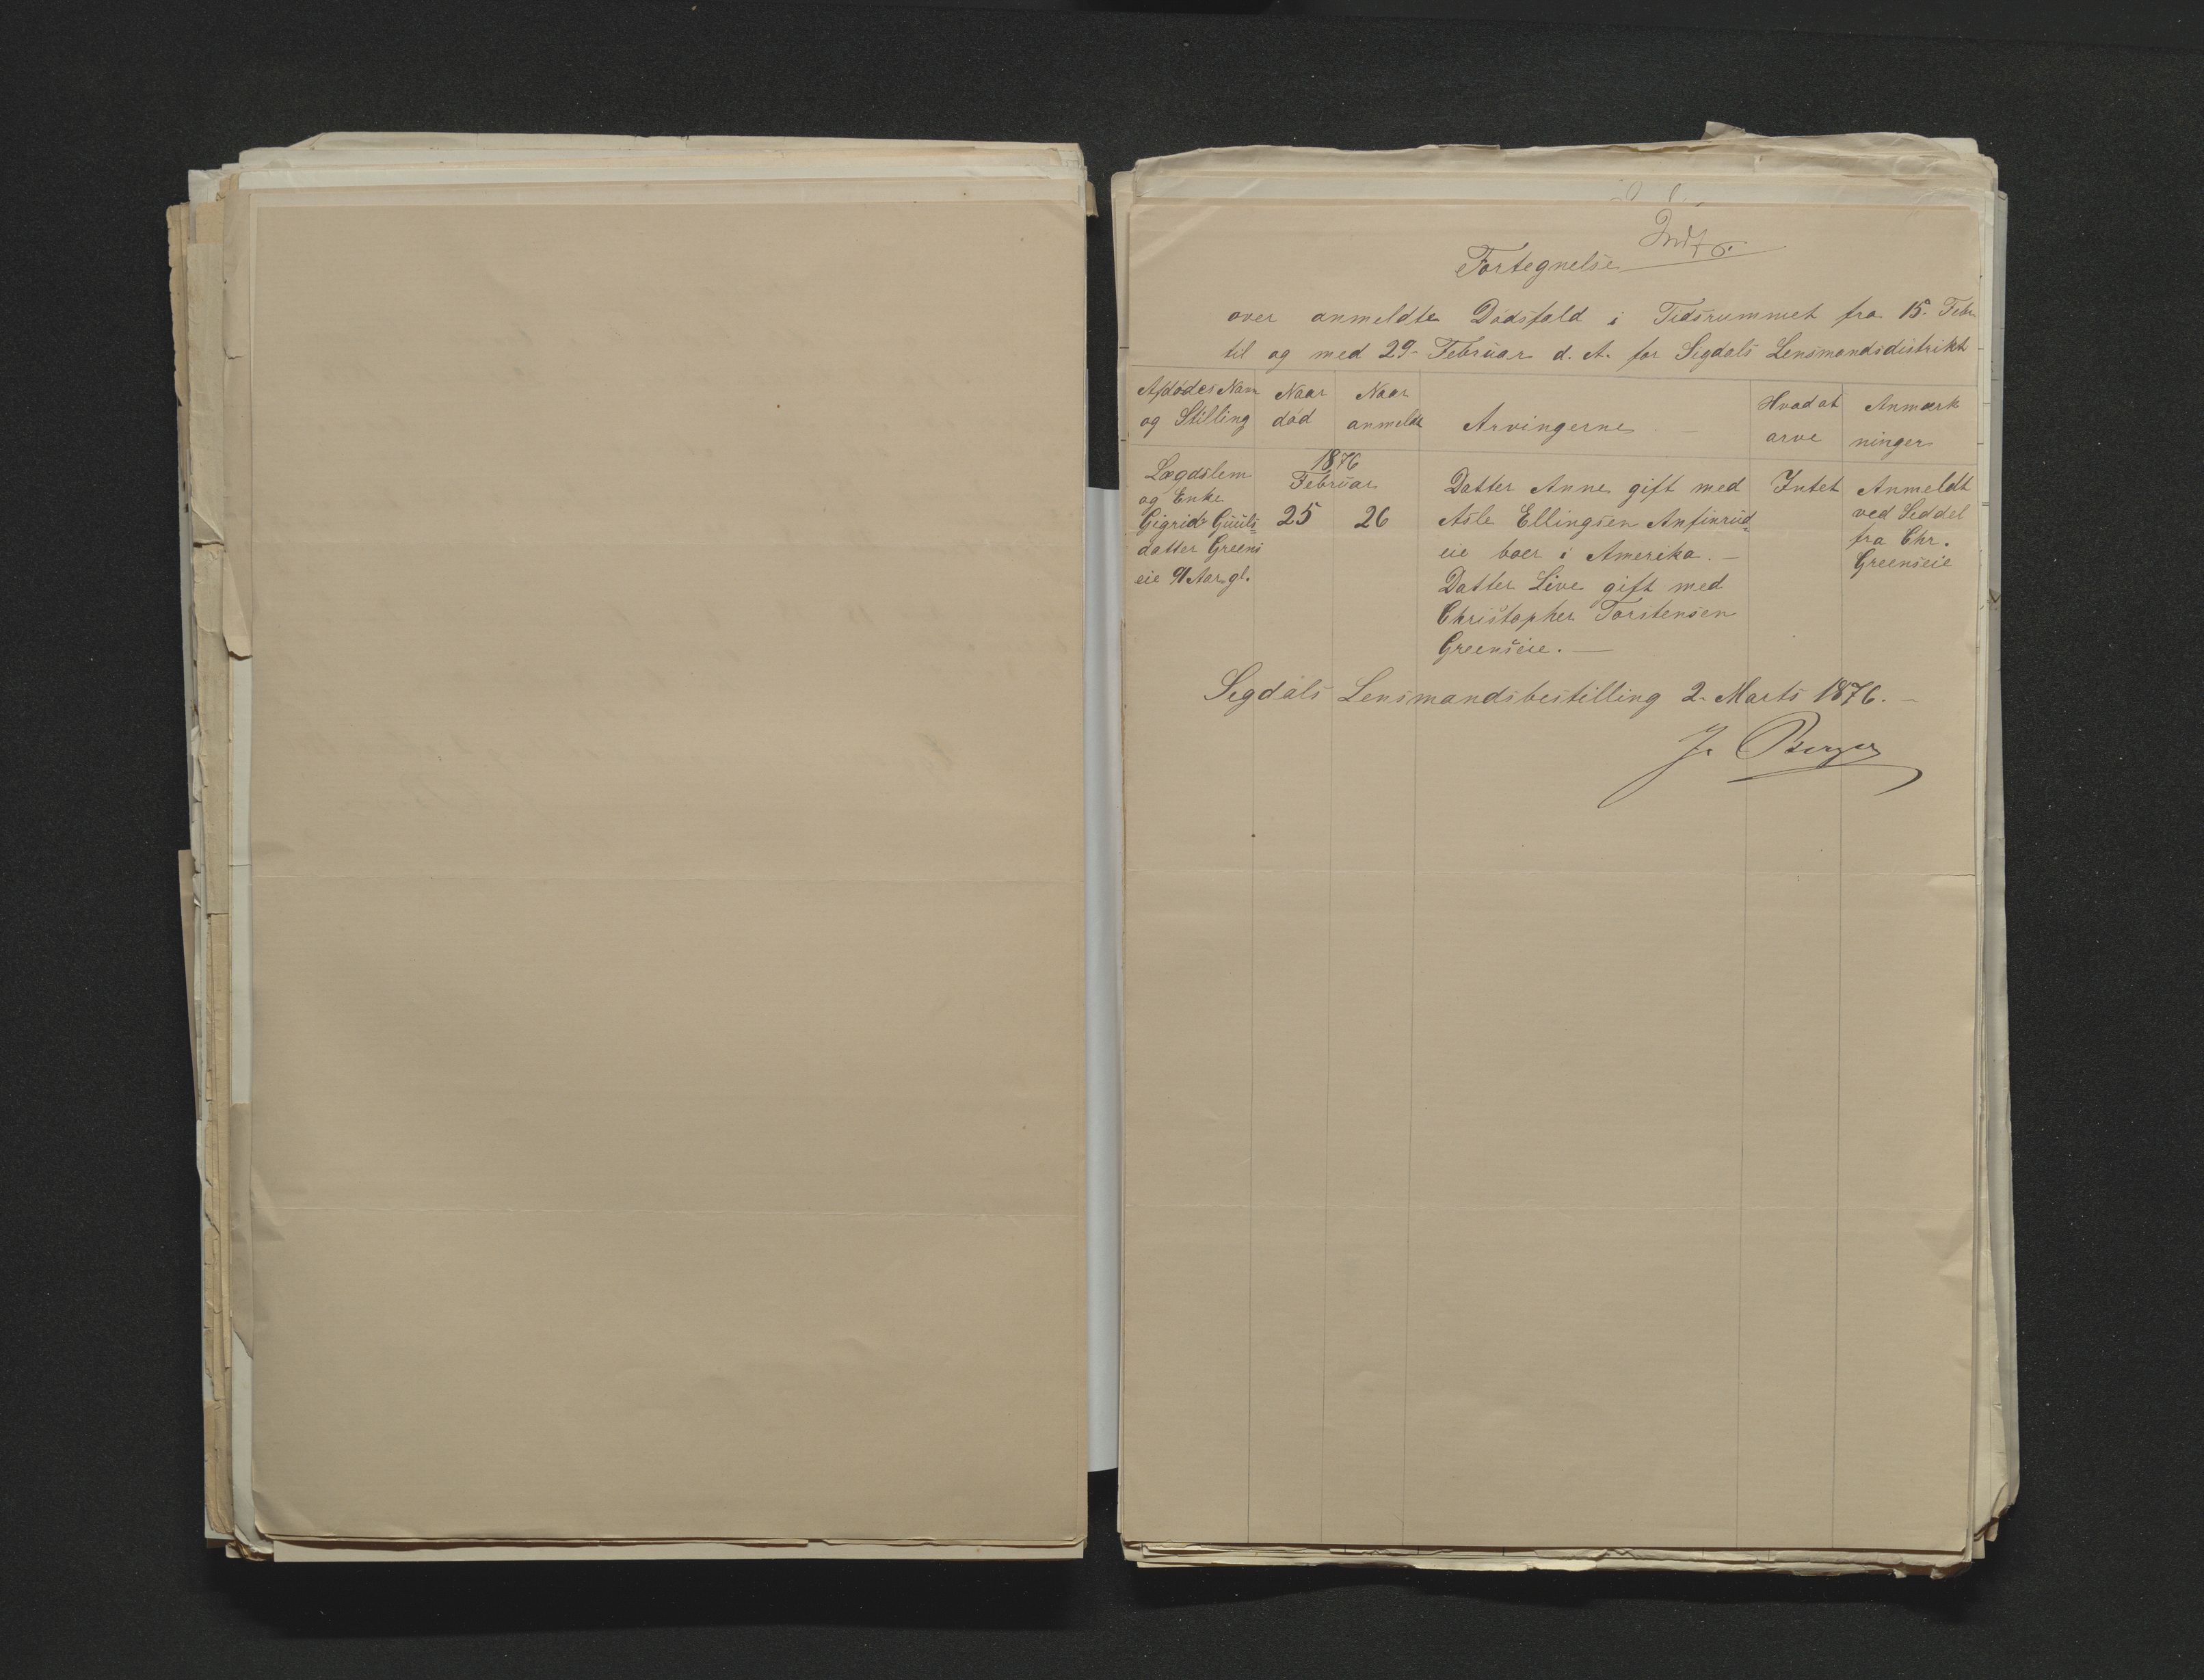 Indf
Fortegnelse
over anmeldte Dødsfald i Tidsrummet fra 15. Febr
til og med 29. Februar d. A. for Sigdals Lensmandsdistrikt
Afdødes Navn
og Stilling
Naar
død
Naar
anmeldt
Arvingerne
Hvad at
arve
Anmærk
ninger
Lægdslem
og Enke
Gigrid Guuls=
datter Greens
eie 91 Aar gl.
1876
Februar
25 26
Datter Anne gift med
Asle Ellingsen Anfinrud=
eie boer i Amerika. —
Datter Live gift med
Christopher Torstensen
Greenseie. —
Intet
Anmeldt
ved Seddel
fra Chr.
Greenseie
Sigdals Lensmandsbestilling 2. Marts 1876. —
J. Berger